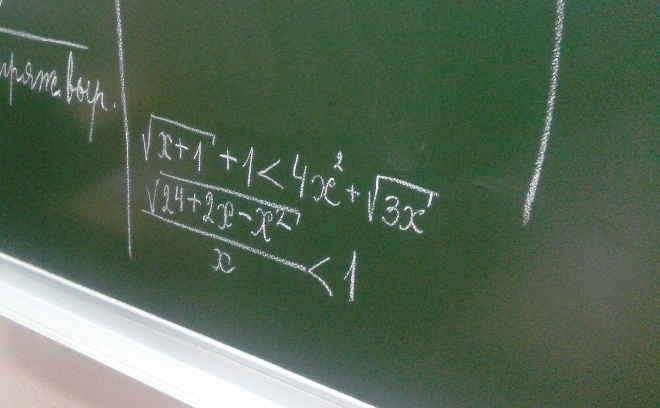 пряж выр.
√x+1 + 1 < 4x² + √3x
√24+2x-x²
x < 1